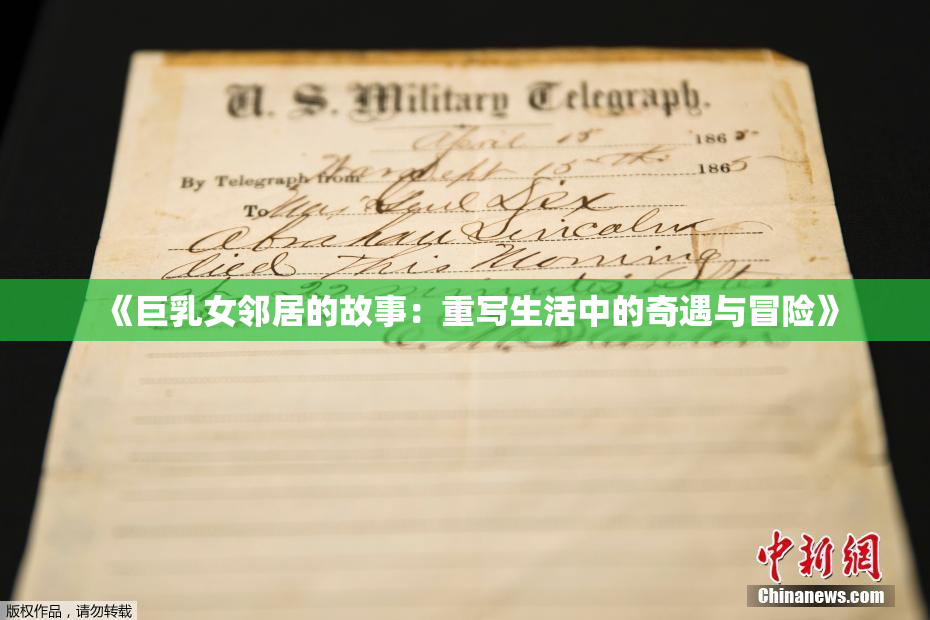 U. S. Military Telegraph.
April 15 1865
By Telegraph from War Dept 15th 1865
To Maj Genl Dix
Abraham Lincoln
died This Morning
22 minutes after
《巨乳女邻居的故事：重写生活中的奇遇与冒险》
中新网
Chinanews.com
版权作品，请勿转载